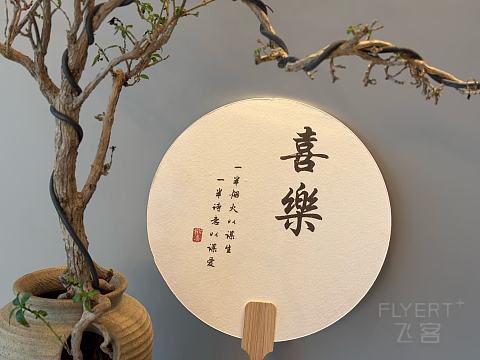 喜樂
一半烟火以谋生
一半诗意以谋爱
FLYERT+
飞客